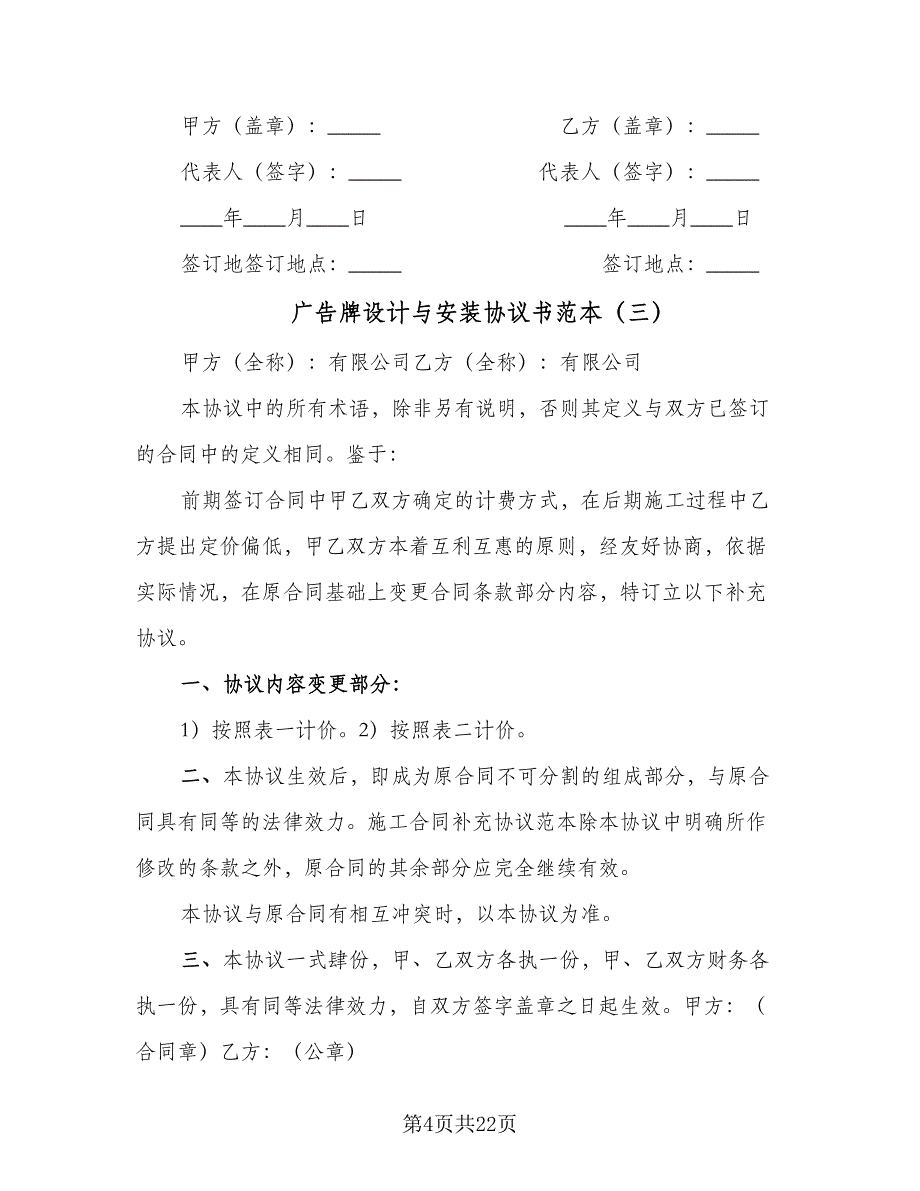 甲方（盖章）：_____ 乙方（盖章）：_____
代表人（签字）：_____ 代表人（签字）：_____
____年____月____日 ____年____月____日
签订地签订地点：_____ 签订地点：_____
广告牌设计与安装协议书范本（三）
甲方（全称）：有限公司乙方（全称）：有限公司
本协议中的所有术语，除非另有说明，否则其定义与双方已签订
的合同中的定义相同。鉴于：
前期签订合同中甲乙双方确定的计费方式，在后期施工过程中乙
方提出定价偏低，甲乙双方本着互利互惠的原则，经友好协商，依据
实际情况，在原合同基础上变更合同条款部分内容，特订立以下补充
协议。
一、协议内容变更部分：
1）按照表一计价。2）按照表二计价。
二、本协议生效后，即成为原合同不可分割的组成部分，与原合
同具有同等的法律效力。施工合同补充协议范本除本协议中明确所作
修改的条款之外，原合同的其余部分应完全继续有效。
本协议与原合同有相互冲突时，以本协议为准。
三、本协议一式肆份，甲、乙双方各执一份，甲、乙双方财务各
执一份，具有同等法律效力，自双方签字盖章之日起生效。甲方：（
合同章）乙方：（公章）
第4页共22页